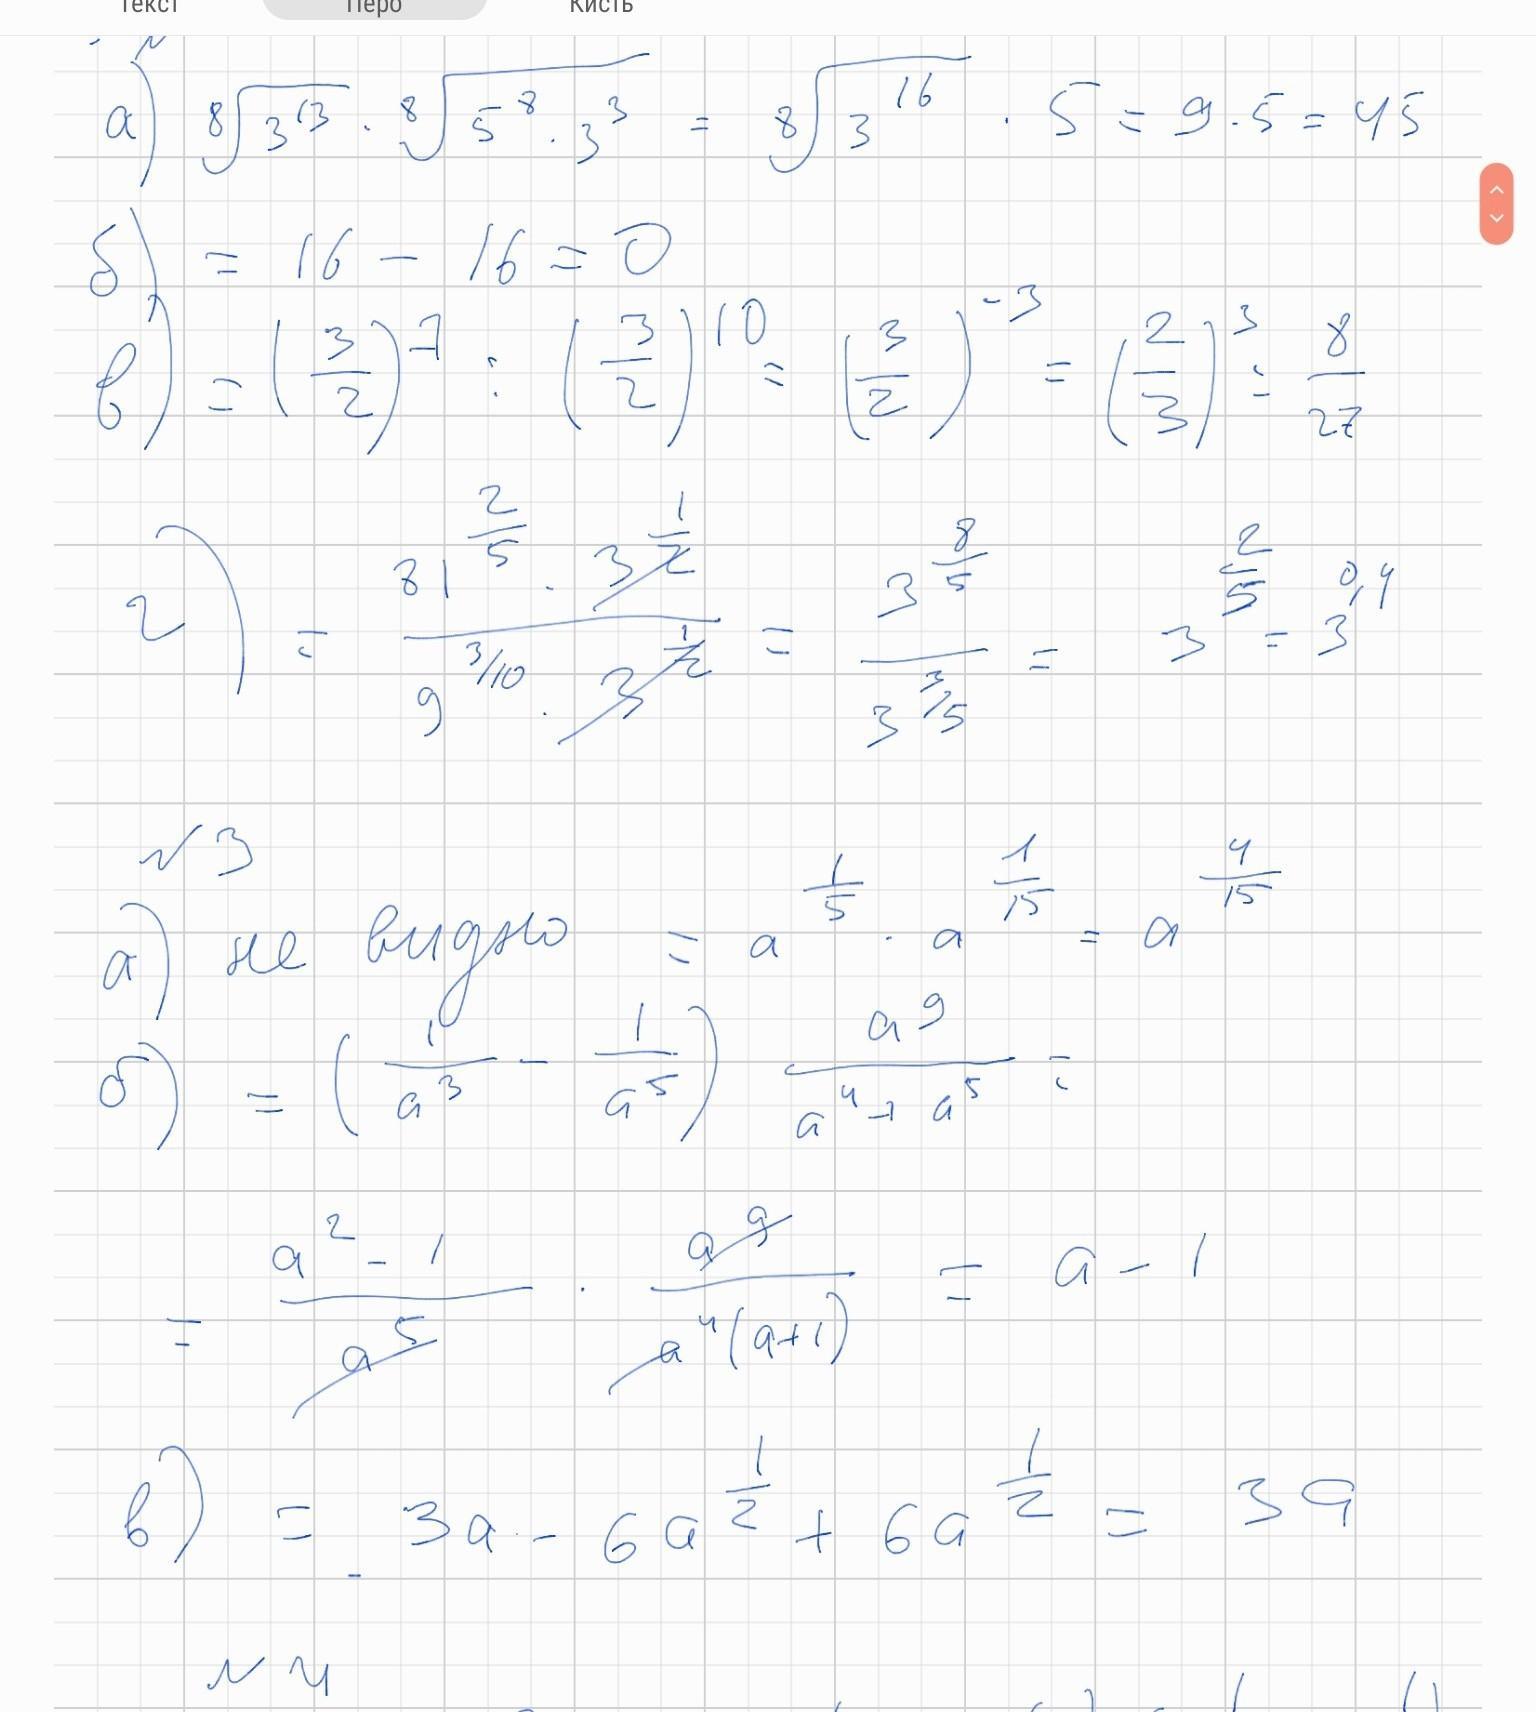 Текст Перо Кисть
а) ⁸√(3¹³) · ⁸√(5⁸ · 3³) = ⁸√(3¹⁶) · 5 = 9 · 5 = 45
б) = 16 - 16 = 0
в) = (3/2)⁷ : (3/2)¹⁰ = (3/2)⁻³ = (2/3)³ = 8/27
г) = (81^(2/5) · 3^(1/2)) / (9^(3/10) · 3^(1/2)) = 3^(8/5) / 3^(3/5) = 3^(2/5) = 3^(0,4)
№3
а) не видно = a^(1/5) · a^(1/15) = a^(4/15)
б) = (1/a³ - 1/a⁵) a⁹/(a⁴ + a⁵) =
= (a² - 1)/a⁵ · a⁹/(a⁴(a+1)) = a - 1
в) = 3a - 6a^(1/2) + 6a^(1/2) = 3a
№4